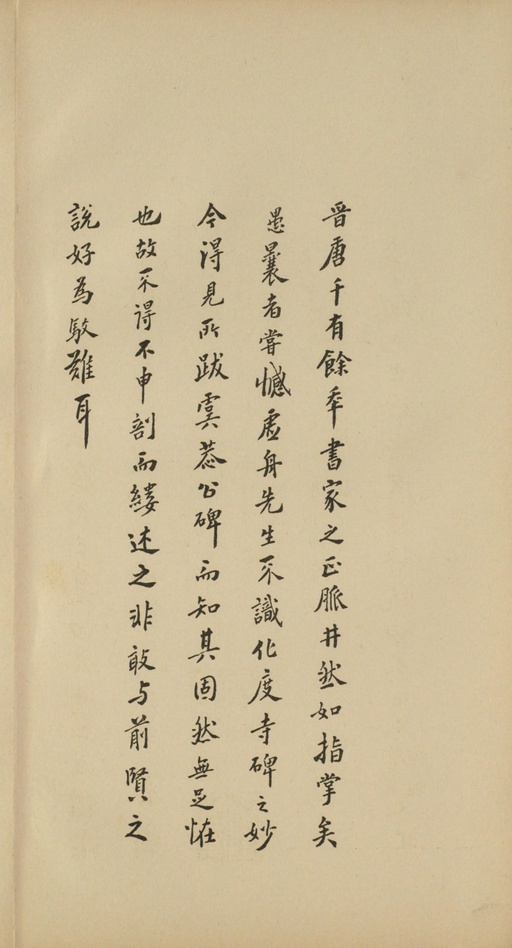 晉唐千有餘年書家之正脈井然如指掌矣
愚曩者嘗憾虛舟先生不識化度寺碑之妙
今得見所跋虞恭公碑而知其固然無足怪
也故不得不申剖而縷述之非敢与前賢之
說好為駁難耳